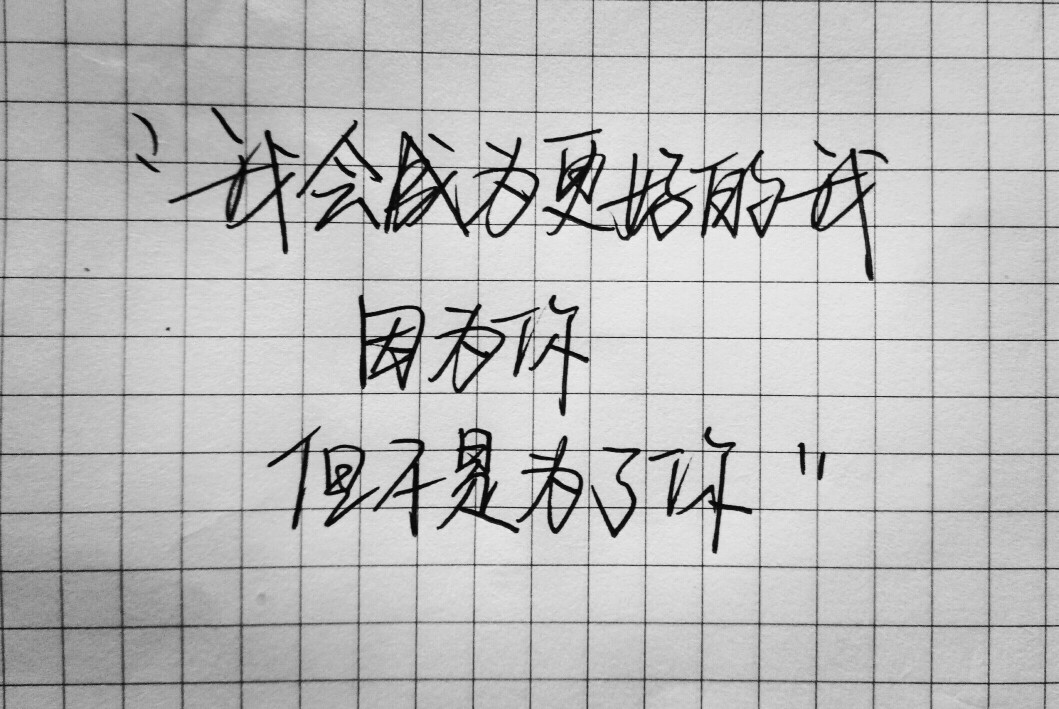 “我会成为更好的我
因为你
但不是为了你”